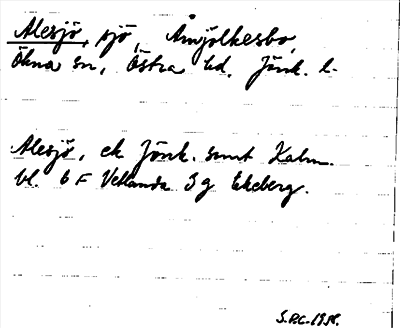 Alesjö, sjö, Åmjölkesbo,
Ökna sn, Östra hd, Jönk. l.
Alesjö, ek Jönk. samt Kalm.
bl. 6 F Vetlanda 3 g Ekeberg.
S.P.C. 1958.